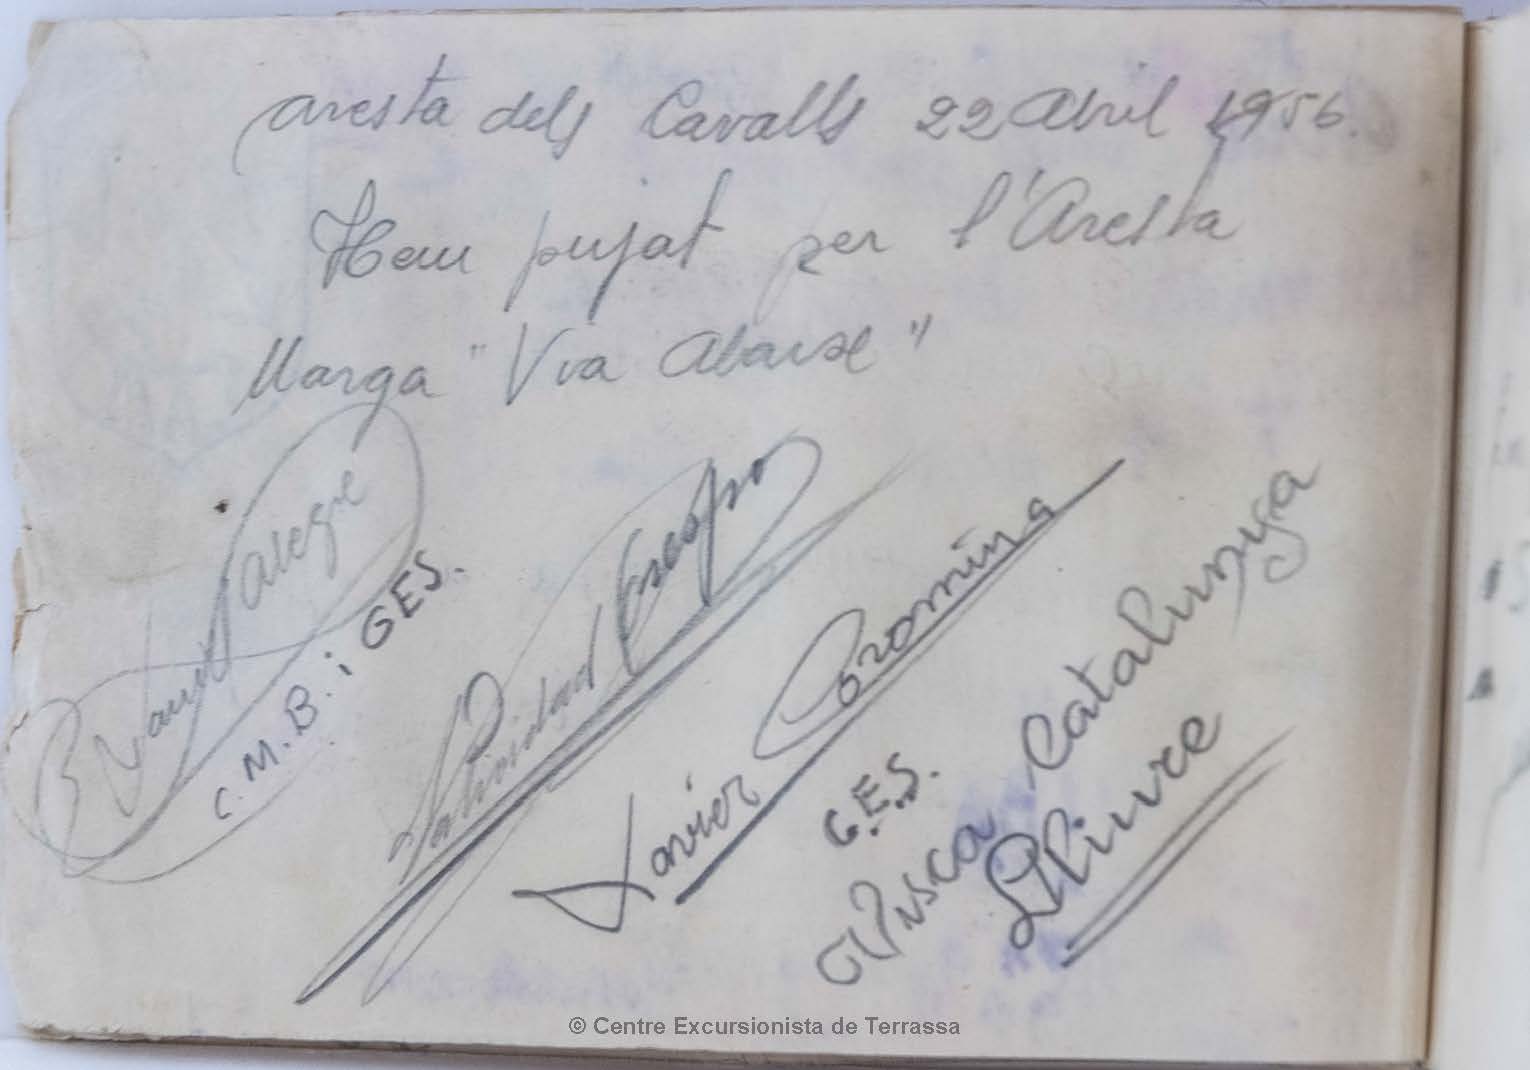 Aresta dels Cavalls 22 Abril 1956.
Hem pujat per l'Aresta
Marga "Via Abaixe"
Alegre
C.M.B. i GES.
Natividad Crespo
Xavier Coromina
G.E.S.
Visca Catalunya
Lliure
© Centre Excursionista de Terrassa